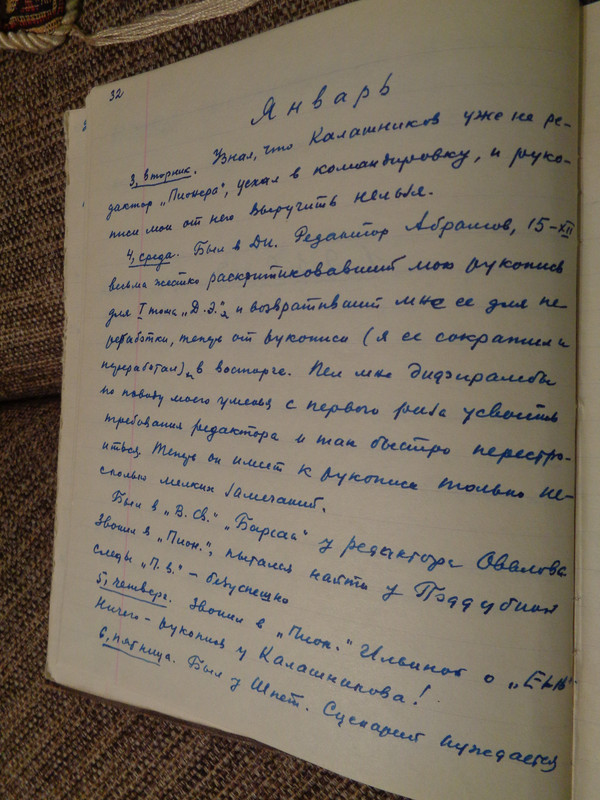 32
Январь
3, вторник. Узнал, что Калашников уже не ре-
дактор „Пионера", уехал в командировку, и руко-
писи мои от него выручить нельзя.
4, среда. Был в ДИ. Редактор Абрамов, 15-XII
весьма жестко раскритиковавший мою рукопись
для I тома „Д.Э." и возвративший мне ее для пе
реработки, теперь от рукописи (я ее сократил и
переработал) в восторге. Пел мне дифирамбы
по поводу моего уменья с первого раза усвоить
требования редактора и так быстро перестро-
иться. Теперь он имеет к рукописи только не-
сколько мелких замечаний.
Был в „В. Св." у редактора Овалова
Звонил в „Пион.", пытался найти у Поддубной
следы „П. В." - безуспешно
5, четверг. Звонил в „Пион." Ильиной о
Ничего - рукопись у Калашникова!
6, пятница. Был у Шпет. Сценарий нуждается